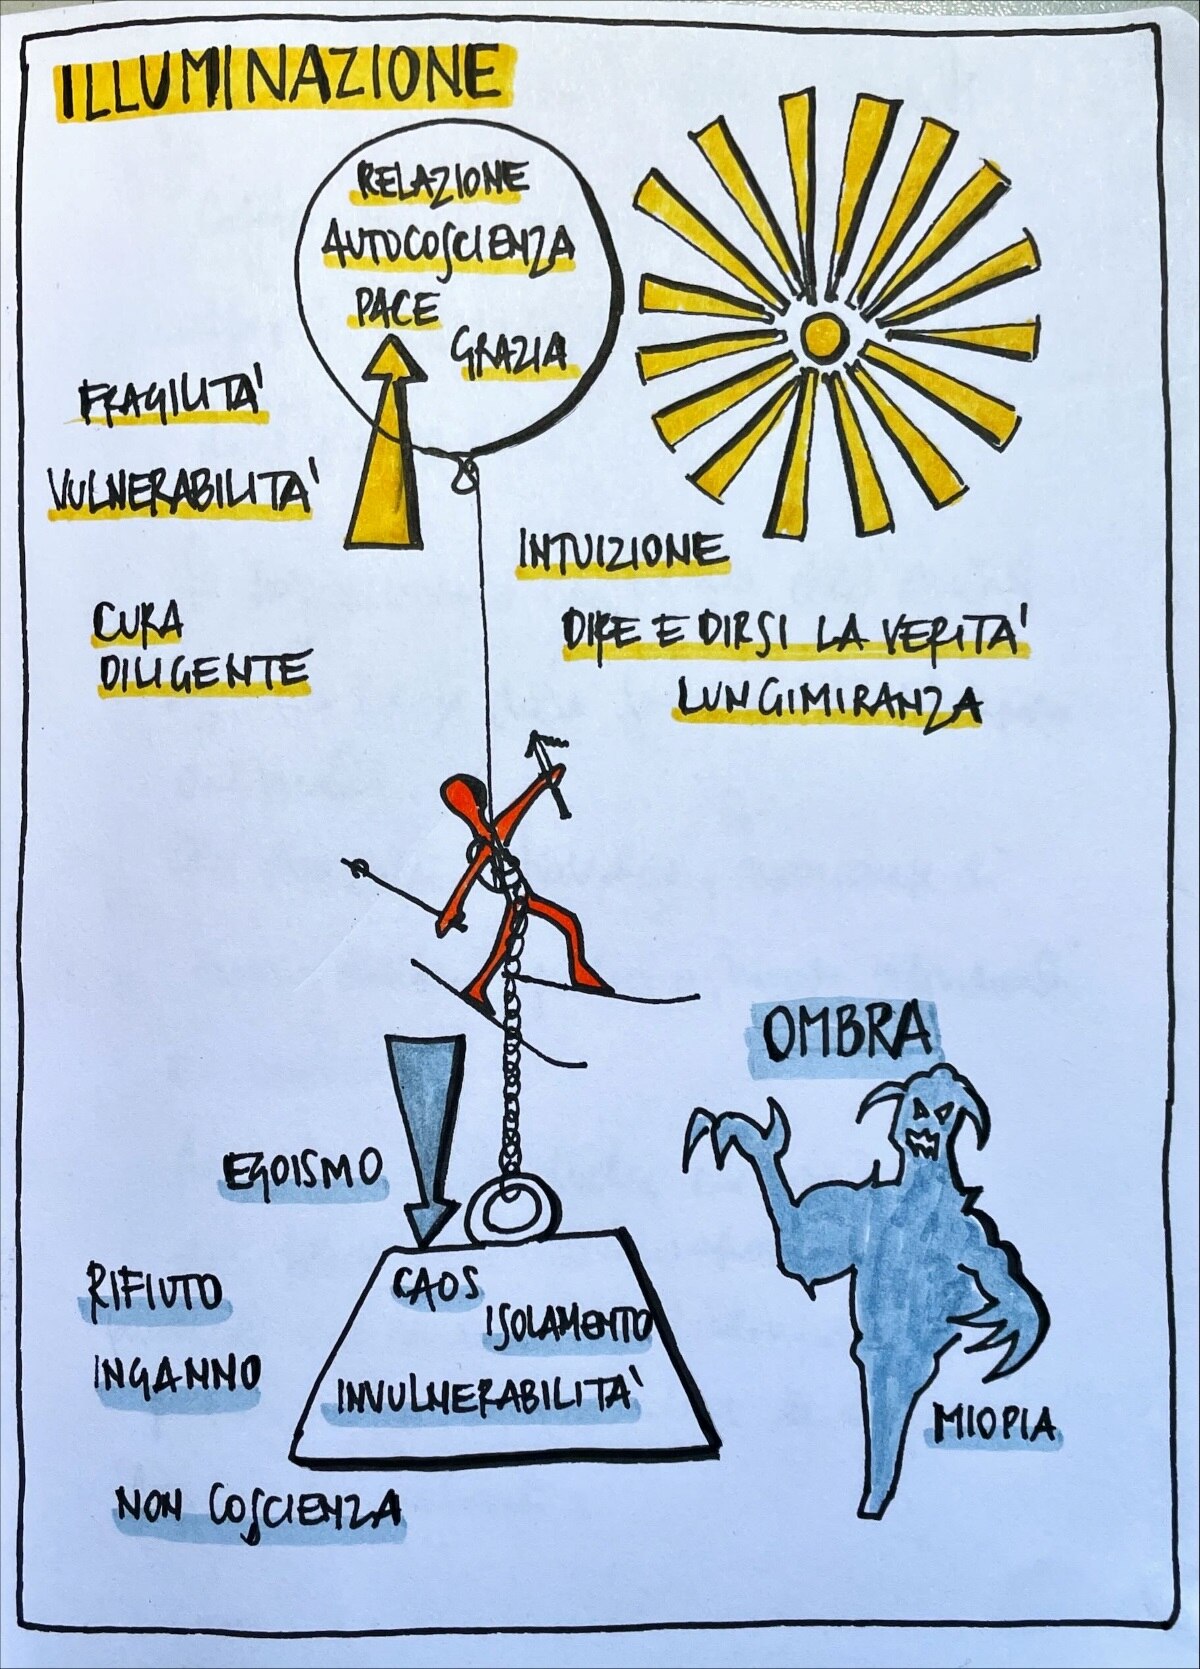 ILLUMINAZIONE
RELAZIONE
AUTOCOSCIENZA
PACE
GRAZIA
FRAGILITA'
VULNERABILITA'
INTUIZIONE
CURA
DILIGENTE
DIRE E DIRSI LA VERITA'
LUNGIMIRANZA
OMBRA
EGOISMO
RIFIUTO
INGANNO
CAOS
ISOLAMENTO
INVULNERABILITA'
MIOPIA
NON COSCIENZA